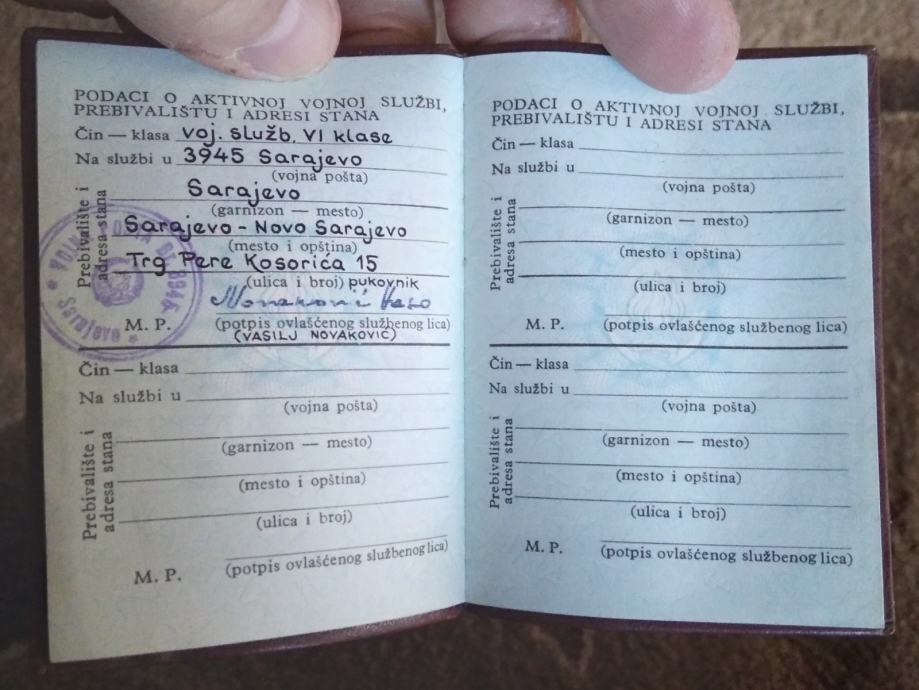 PODACI O AKTIVNOJ VOJNOJ SLUŽBI,
PREBIVALIŠTU I ADRESI STANA
Čin — klasa voj. služb. VI klase
Na službi u 3945 Sarajevo
(vojna pošta)
Prebivalište i
adresa stana
Sarajevo
(garnizon — mesto)
Sarajevo - Novo Sarajevo
(mesto i opština)
Trg Pere Kosorića 15
(ulica i broj) pukovnik
M. P.
(potpis ovlašćenog službenog lica)
(VASILJ NOVAKOVIĆ)
Sarajevo
Čin — klasa
Na službi u
(vojna pošta)
Prebivalište i
adresa stana
(garnizon — mesto)
(mesto i opština)
(ulica i broj)
M. P.
(potpis ovlašćenog službenog lica)
PODACI O AKTIVNOJ VOJNOJ SLUŽBI,
PREBIVALIŠTU I ADRESI STANA
Čin — klasa
Na službi u
(vojna pošta)
Prebivalište i
adresa stana
(garnizon — mesto)
(mesto i opština)
(ulica i broj)
M. P.
(potpis ovlašćenog službenog lica)
Čin — klasa
Na službi u
(vojna pošta)
Prebivalište i
adresa stana
(garnizon — mesto)
(mesto i opština)
(ulica i broj)
M. P.
(potpis ovlašćenog službenog lica)